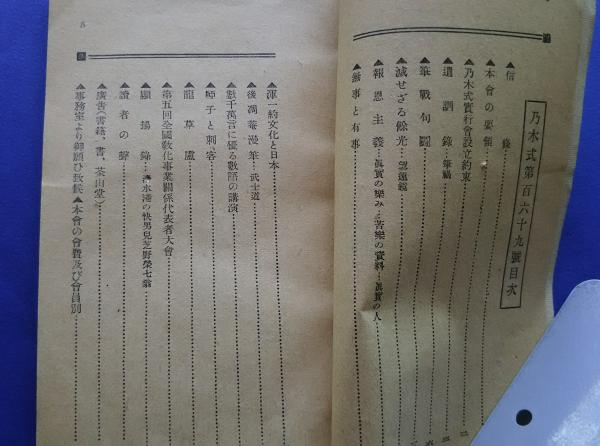 乃木式第百六十九號目次
▲信條
▲本會の要領
▲乃木式實行會設立約束
▲遺訓錄…華牋
▲筆戰句鬪
▲滅せざる餘光…望遠鏡
▲報恩主義…眞實の樂み…苦樂の資料…眞實の人
▲無事と有事
▲渾一的文化と日本
▲後凋菴漫筆…武士道
▲數千萬言に優る數語の講演
▲啞子と刺客
▲龍草廬
▲第五回全國敎化事業關係代表者大會
▲顯揚錄…淸水港の快男兒芝野榮七翁
▲讀者の聲
▲廣告(書籍、書、茶山堂)
▲事務室より御願ひ致候▲本會の會費及び會員別